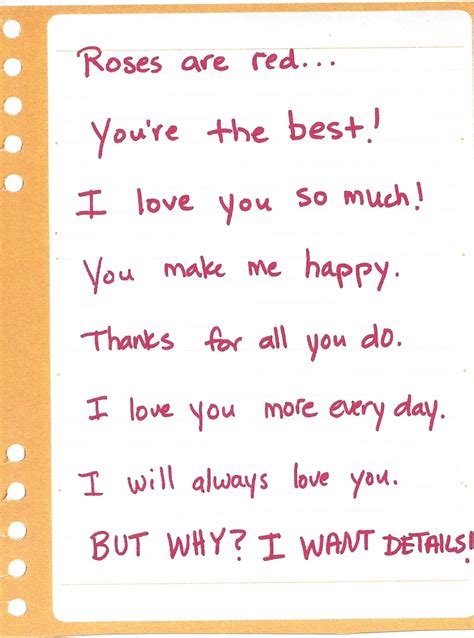 Roses are red...
You're the best!
I love you so much!
You make me happy.
Thanks for all you do.
I love you more every day.
I will always love you.
BUT WHY? I WANT DETAILS!